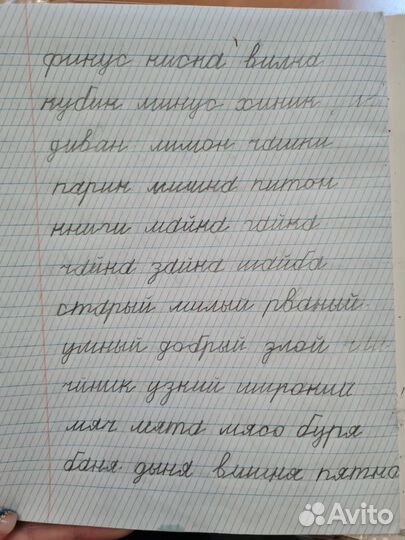 фикус киска вилка
кубик минус химик
диван лимон чашки
парик мишка питон
книги майка гайка
чайка зайка шайба
старый милый рваный
умный добрый злой
чйник узкий широкий
мяч мята мясо буря
баня дыня вишня
Avito